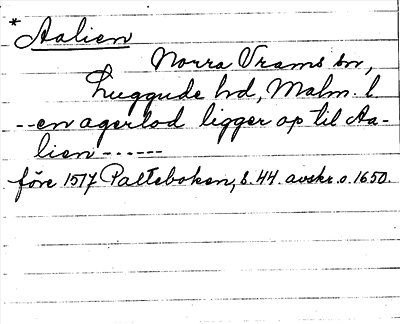 * Aalien
Norra Vrams sn,
Luggude hd, Malm. l.
-- en agerlod ligger op til Aa-
lien ------
före 1517 Palteboken, s. 44. avskr. o. 1650.